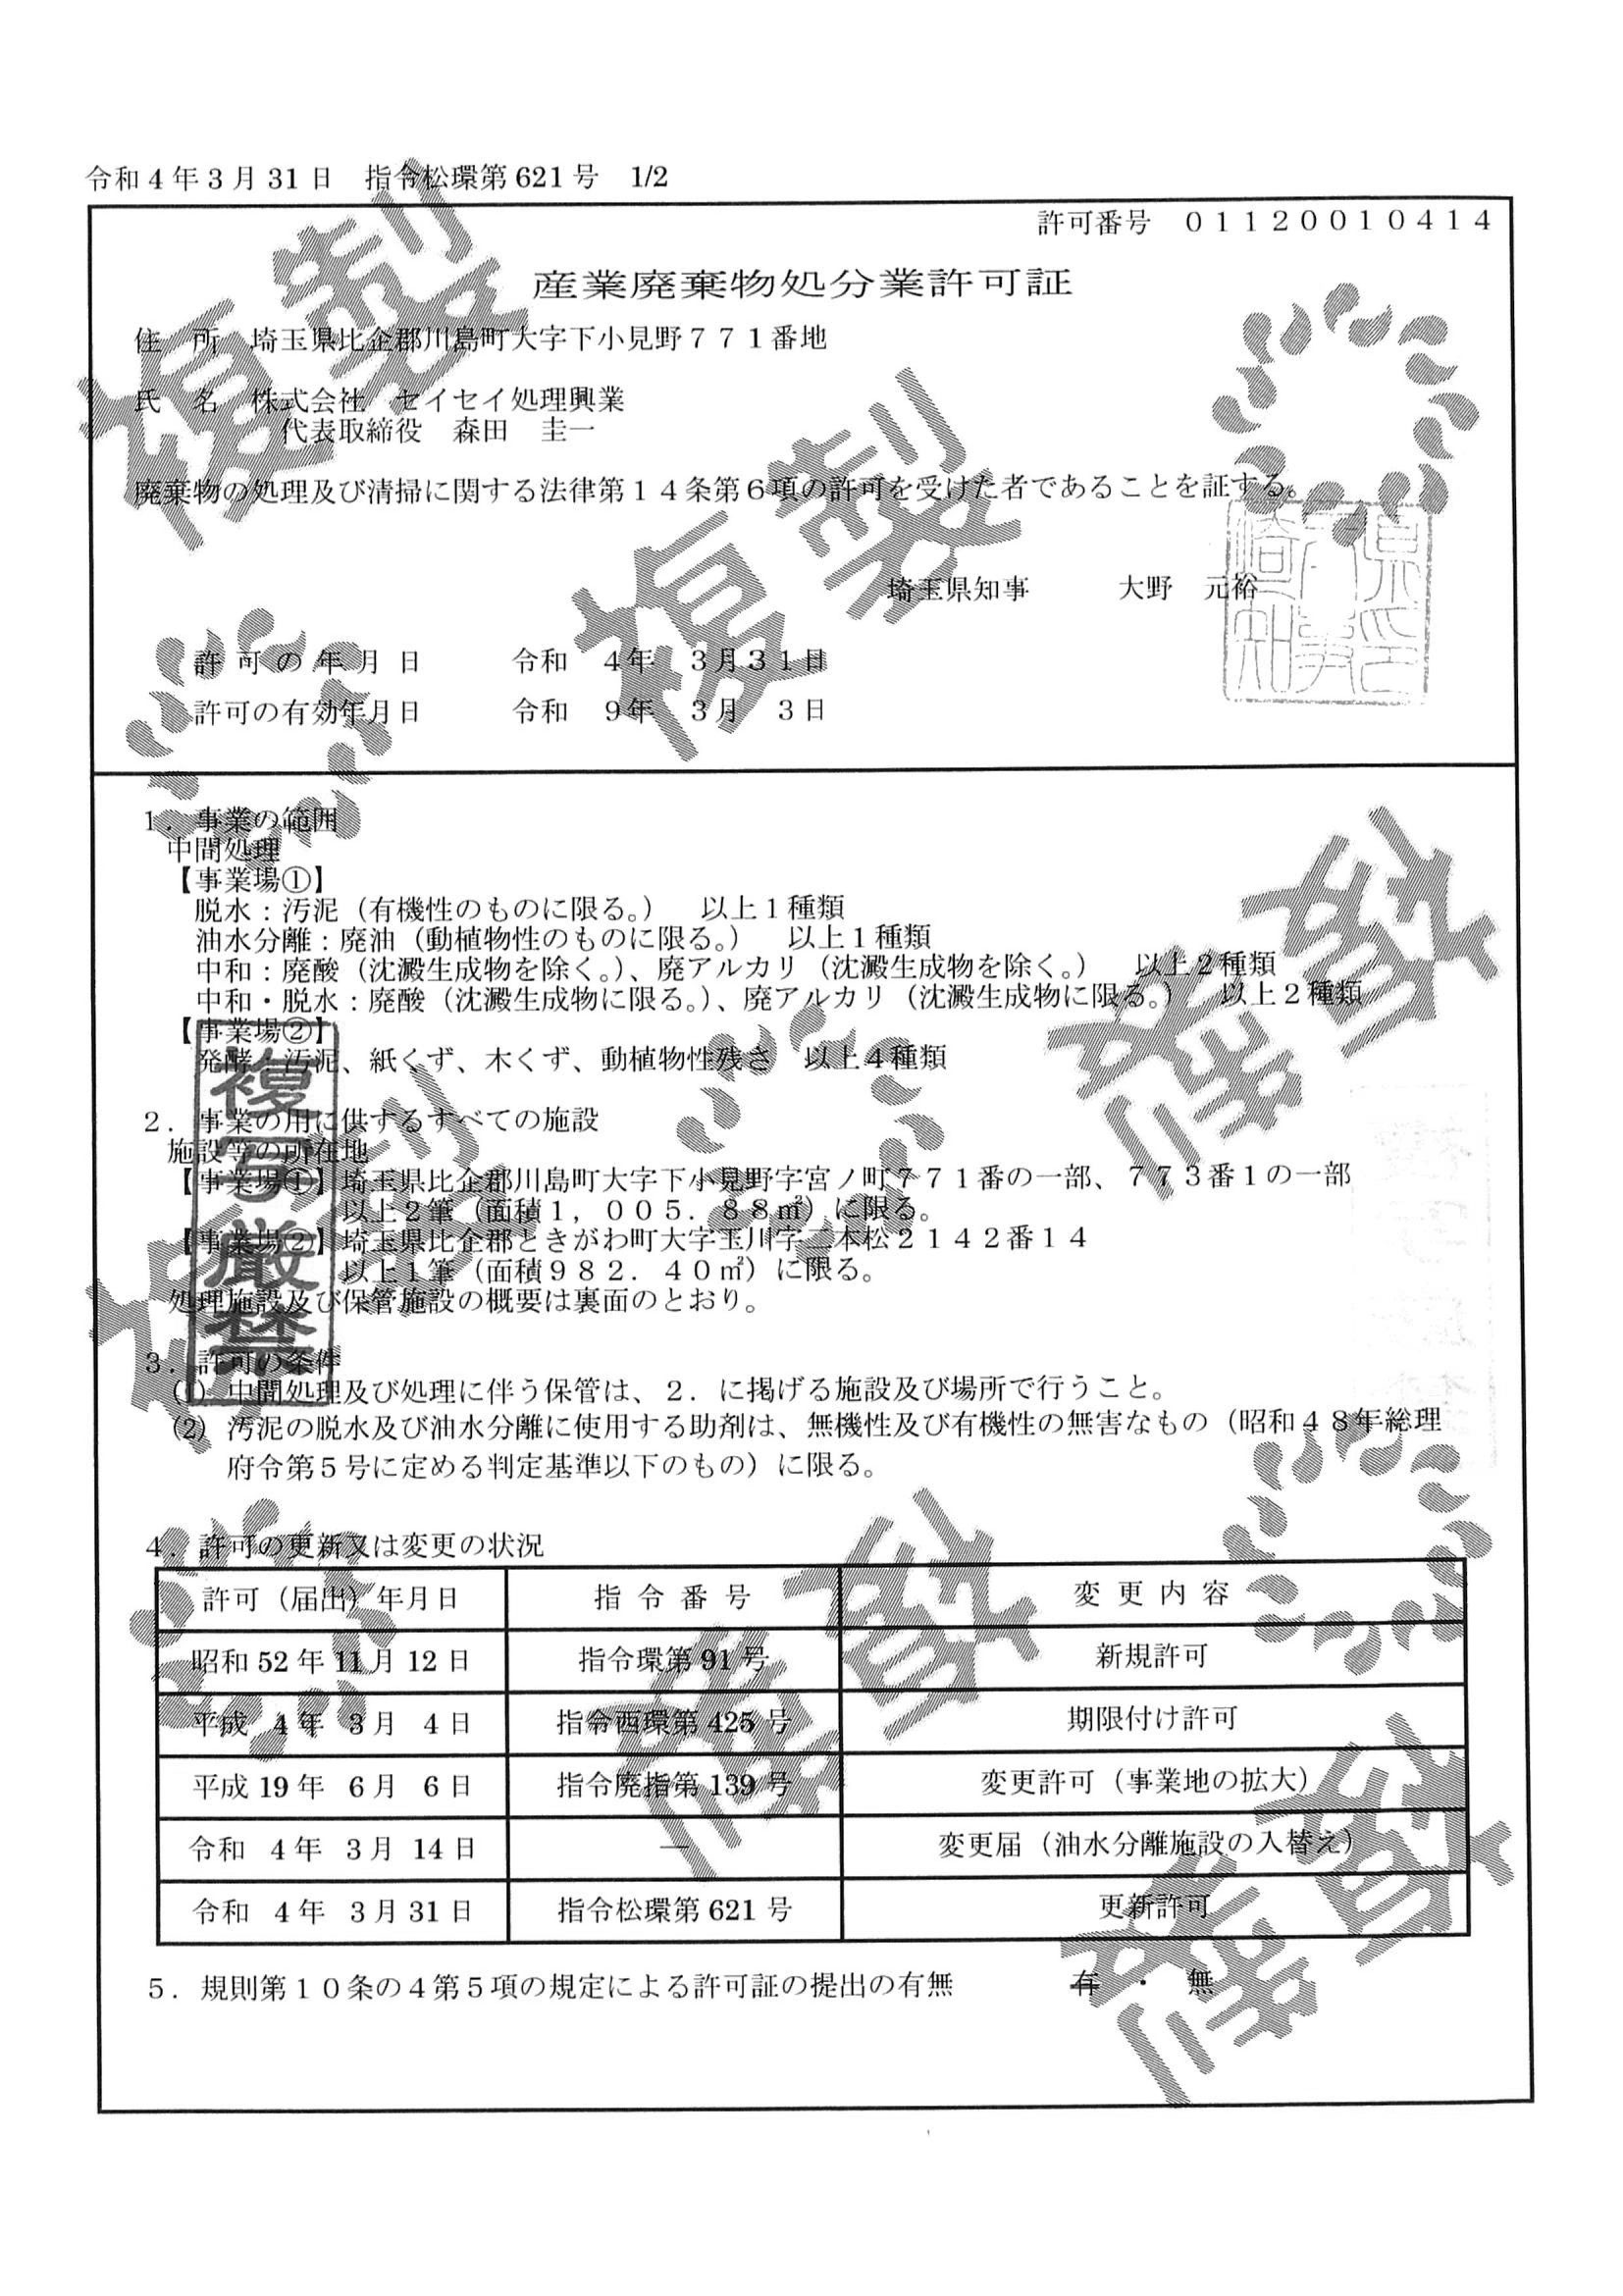 令和4年3月31日　指令松環第621号　1/2
許可番号　０１１２００１０４１４
産業廃棄物処分業許可証
住　所　埼玉県比企郡川島町大字下小見野７７１番地
氏　名　株式会社　セイセイ処理興業
代表取締役　森田　圭一
廃棄物の処理及び清掃に関する法律第１４条第６項の許可を受けた者であることを証する。
埼玉県知事　　　大野　元裕
埼玉県知事之印
許可の年月日　　　令和　４年　３月３１日
許可の有効年月日　　　令和　９年　３月　３日
１．事業の範囲
中間処理
【事業場①】
脱水：汚泥（有機性のものに限る。）　以上１種類
油水分離：廃油（動植物性のものに限る。）　以上１種類
中和：廃酸（沈澱生成物を除く。）、廃アルカリ（沈澱生成物を除く。）　以上２種類
中和・脱水：廃酸（沈澱生成物に限る。）、廃アルカリ（沈澱生成物に限る。）　以上２種類
【事業場②】
発酵：汚泥、紙くず、木くず、動植物性残さ　以上４種類
２．事業の用に供するすべての施設
施設等の所在地
【事業場①】埼玉県比企郡川島町大字下小見野字宮ノ町７７１番の一部、７７３番１の一部
以上２筆（面積１，００５．８８㎡）に限る。
【事業場②】埼玉県比企郡ときがわ町大字玉川字二本松２１４２番１４
以上１筆（面積９８２．４０㎡）に限る。
処理施設及び保管施設の概要は裏面のとおり。
３．許可の条件
(1) 中間処理及び処理に伴う保管は、２．に掲げる施設及び場所で行うこと。
(2) 汚泥の脱水及び油水分離に使用する助剤は、無機性及び有機性の無害なもの（昭和４８年総理
府令第５号に定める判定基準以下のもの）に限る。
４．許可の更新又は変更の状況
許可（届出）年月日　指令番号　変更内容
昭和52年11月12日　指令環第91号　新規許可
平成　4年　3月　4日　指令西環第425号　期限付け許可
平成19年　6月　6日　指令廃指第139号　変更許可（事業地の拡大）
令和　4年　3月14日　―　変更届（油水分離施設の入替え）
令和　4年　3月31日　指令松環第621号　更新許可
５．規則第１０条の４第５項の規定による許可証の提出の有無　　　有　・　無
複写厳禁
複製
複製
複製
複製
複製
複製